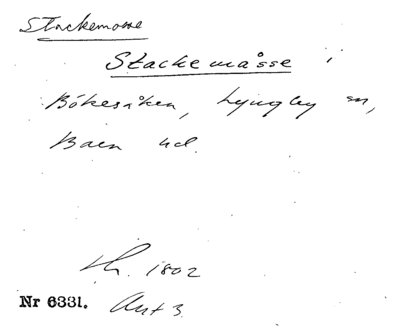 Stackemosse
Stackemåsse i
Bökesåken, Ljungby sn,
Baen ud.
th. 1802
Nr 6331. Ant 3